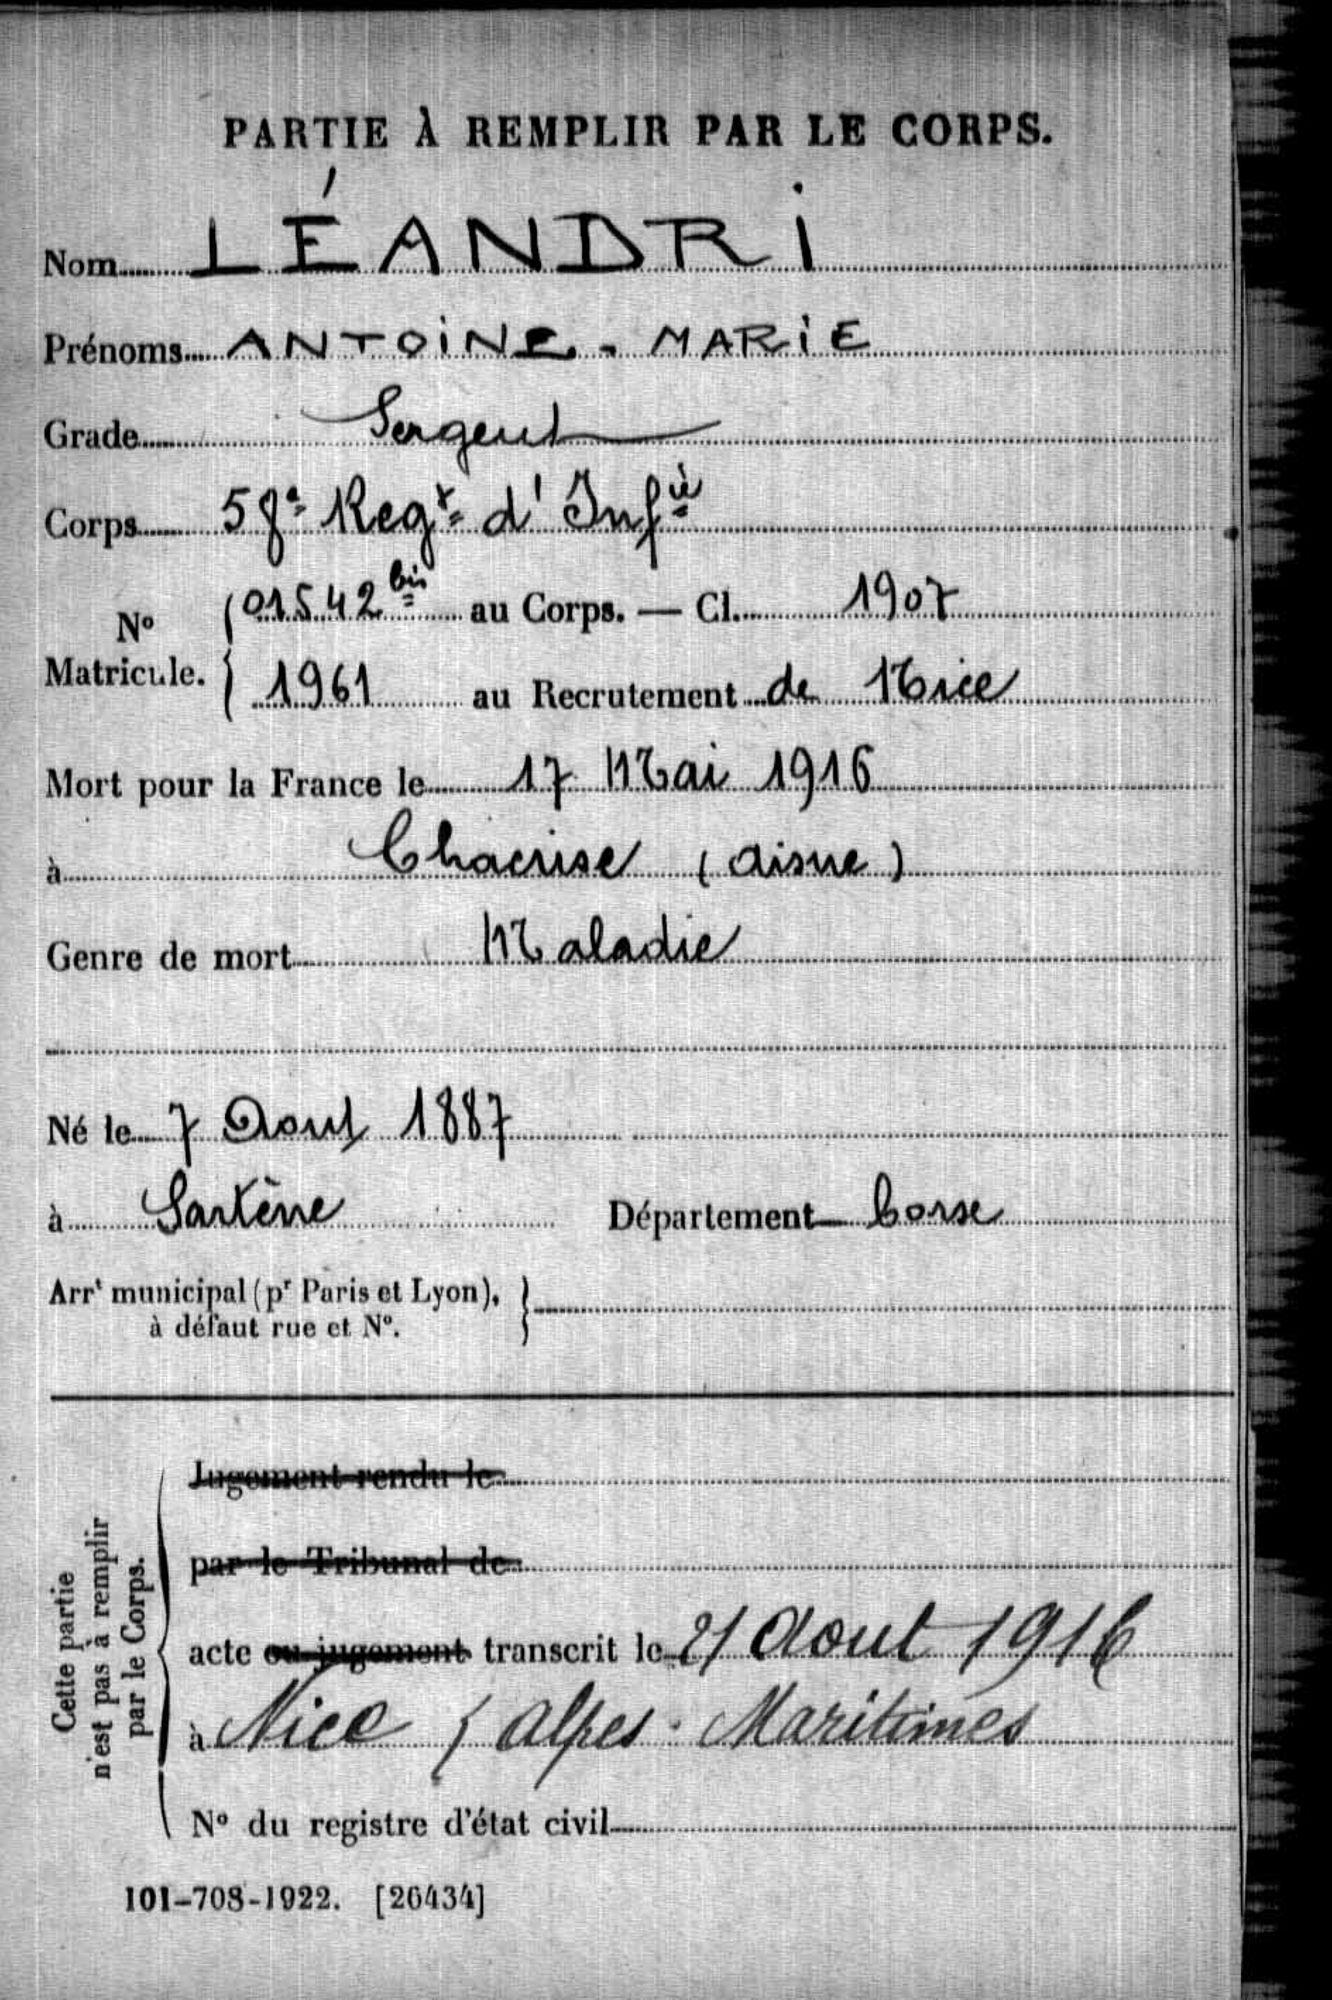 PARTIE À REMPLIR PAR LE CORPS.
Nom LÉANDRI
Prénoms ANTOINE - MARIE
Grade Sergent
Corps 58e Regt d'Infie
No Matricule. { 01542 bis au Corps. — Cl. 1907
1961 au Recrutement de Nice
Mort pour la France le 17 Mai 1916
à Chacrise (Aisne)
Genre de mort Maladie
Né le 7 Aout 1887
à Sartène Département Corse
Arrt municipal (pr Paris et Lyon), }
à défaut rue et No.
Cette partie
n'est pas à remplir
par le Corps.
Jugement rendu le
par le Tribunal de
acte ou jugement transcrit le 21 Aout 1916
à Nice (Alpes-Maritimes
No du registre d'état civil
101-708-1922. [26434]